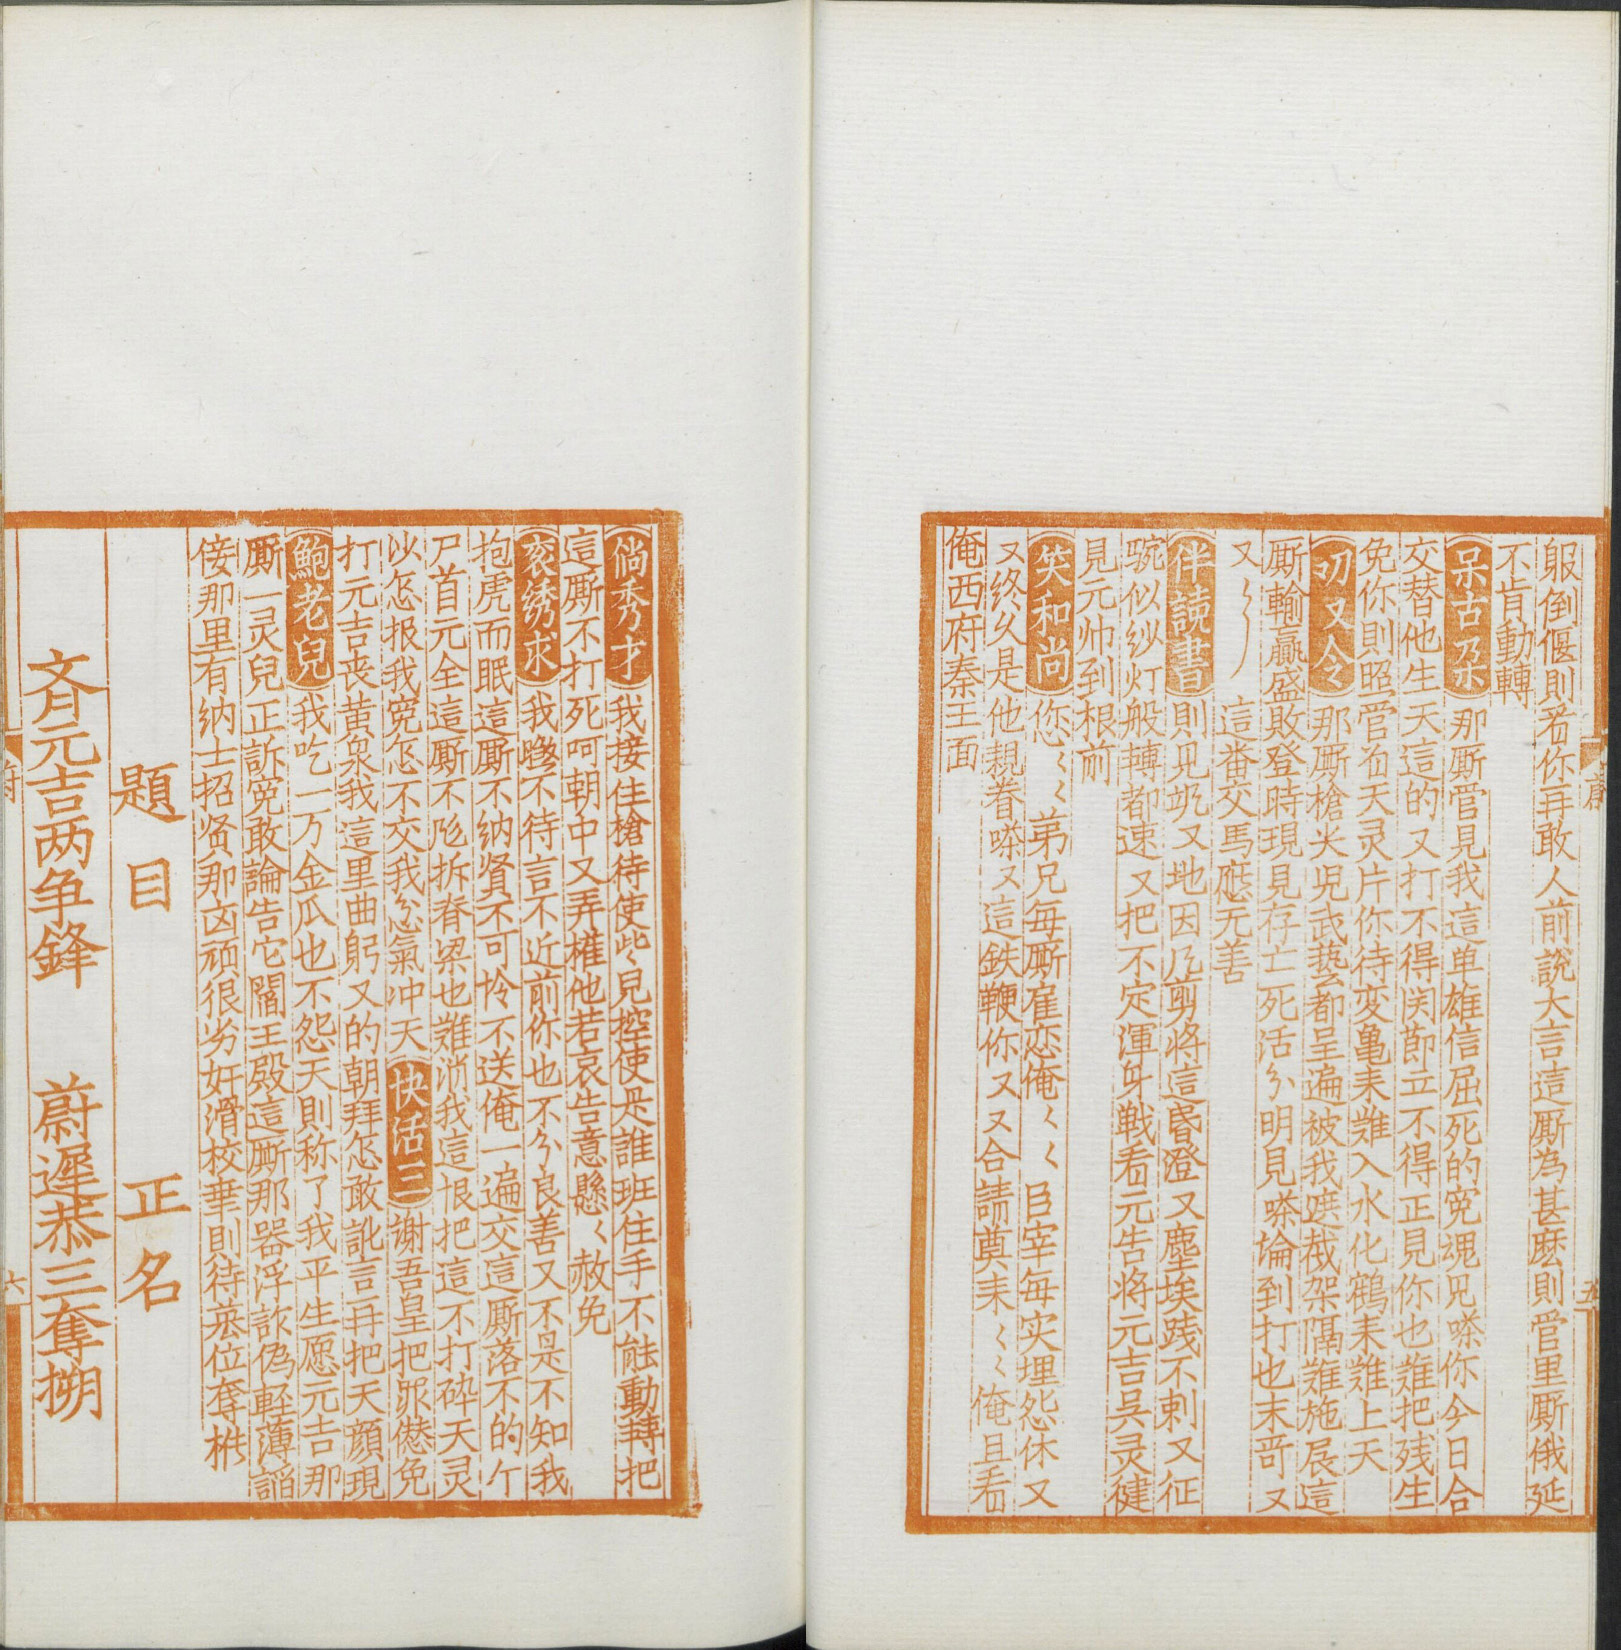 躯倒偃則看你再敢人前説大言這厮為甚麽則管里厮俄延
不肯動轉
呆古朶 那厮管見我這单雄信屈死的寃魂児㗳你今日合
交替他生天這的又打不得関莭立不得正見你也難把残生
免你則照管着天灵片你待变亀耒難入水化鶴耒難上天
叨叨令 那厮槍尖児武藝都呈遍被我㨂㦲架隔難施展這
厮輸贏盛敗登時現見存亡死活分明見㗳堬到打也末哥又
又 這番交馬應无善
伴讀書 則见又地因乃剪将這昏澄又塵埃践不剌又征
䮗似纱灯般轉都速又把不定渾身戦看元吉将元吉吴灵健
見元帅到根前
笑和尚 您〻弟兄每厮雇恋俺〻〻臣宰每实埋怨休又
又终久是他親眷㗳又這鉄鞭你又又合請奠耒〻〻俺且看
俺西府秦王面
倘秀才 我接住槍待使些〻見控使是誰班住手不能動轉把
這厮不打死呵朝中又弄權他若哀告意懸〻赦免
衮绣求 我㗳不待言不近前你也不分良善又不是不知我
抱虎而眠這厮不纳贤不可怜不送俺一遍交這厮落不的个
尸首元全這厮不死拆脊梁也難消我這恨把這不打碎天灵
以怎报我寃怎不交我忿氣冲天 快活三 谢吾皇把罪愆免
打元吉丧黄泉我這里曲躬又的朝拜怎敢訛言再把天顔現
鮑老兒 我吃一万金瓜也不怨天則称了我平生愿元吉那
厮一灵兒正訴寃敢論告它閻王殿這厮那器浮詐偽輕薄謟
侫那里有纳士招贤那凶頑很劣奸滑狡耒則待㧱位夺権
題目 正名
斉元吉两争鋒 蔚遲恭三奪搠